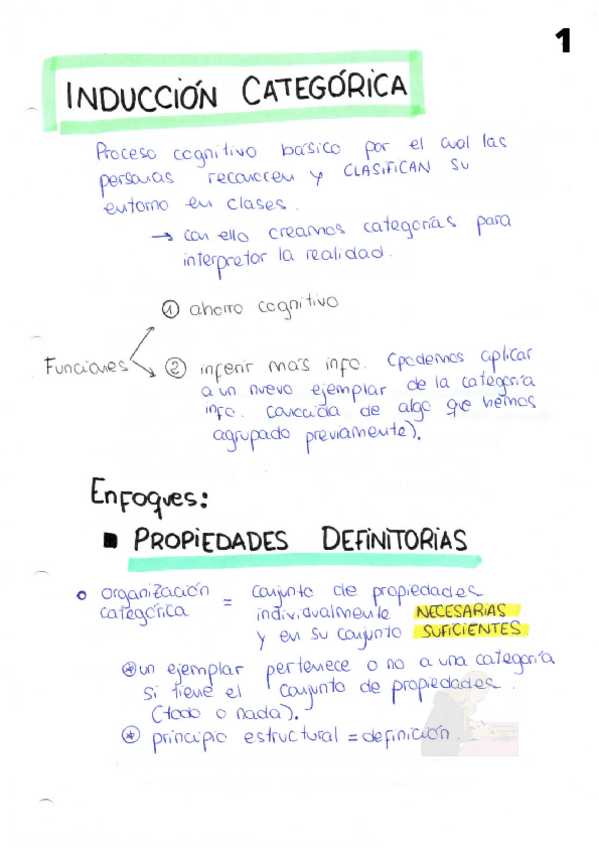 1
INDUCCIÓN CATEGÓRICA
Proceso cognitivo básico por el cual las
personas reconocen y CLASIFICAN su
entorno en clases.
→ con ello creamos categorías para
interpretar la realidad.
① ahorro cognitivo
Funciones
② inferir más info. (podemos aplicar
a un nuevo ejemplar de la categoría
info. conocida de algo que hemos
agrupado previamente).
Enfoques:
■ PROPIEDADES DEFINITORIAS
organización = conjunto de propiedades
categórica individualmente NECESARIAS
y en su conjunto SUFICIENTES
* un ejemplar pertenece o no a una categoría
si tiene el conjunto de propiedades.
(todo o nada).
* principio estructural = definición.